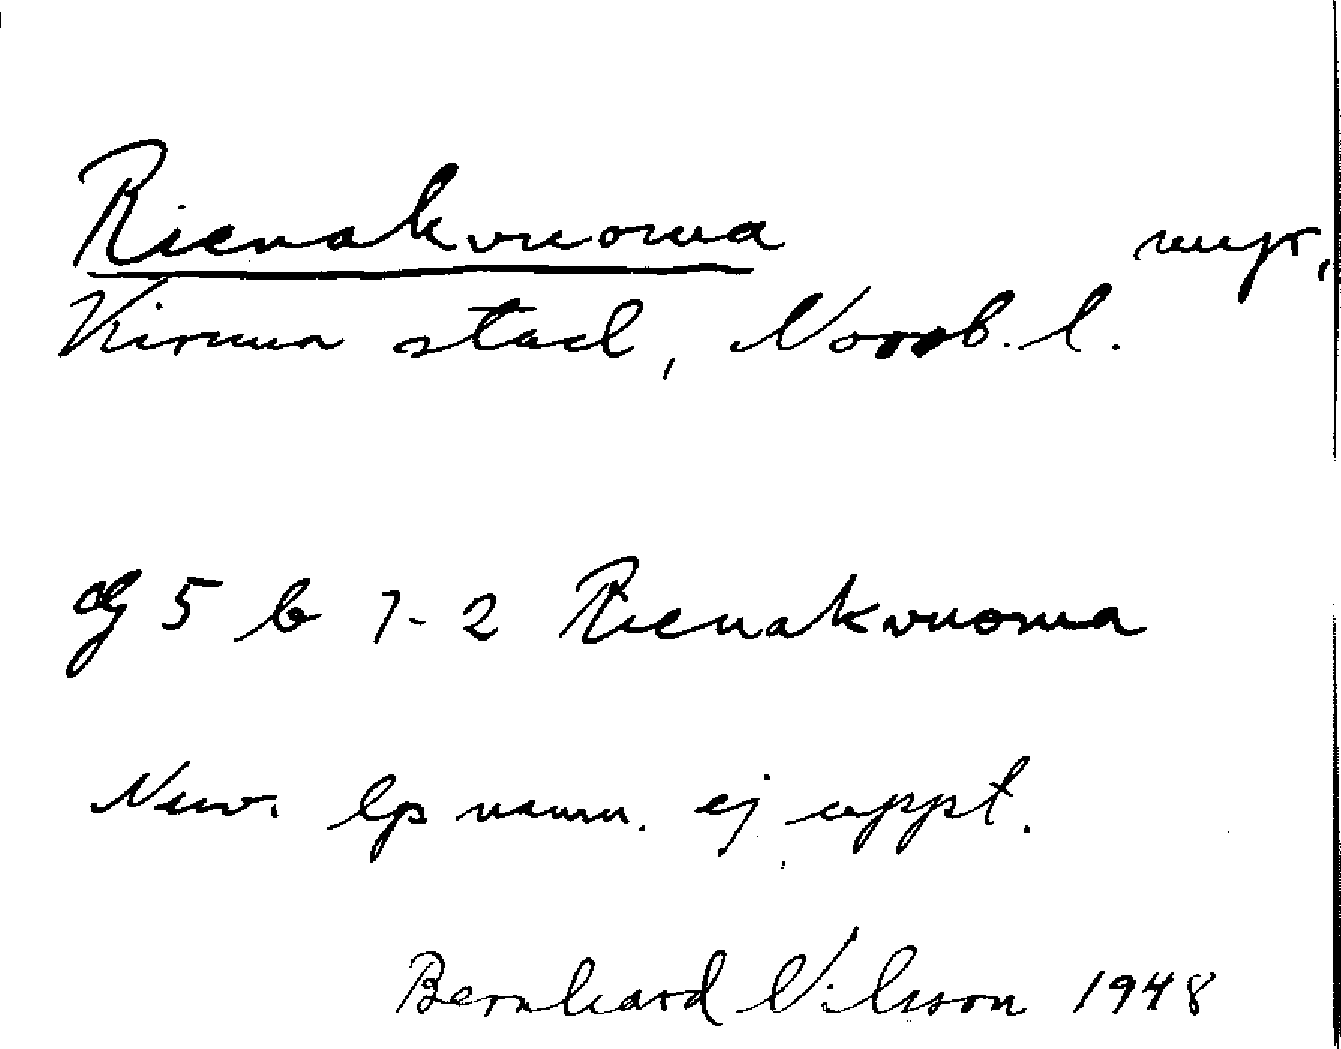 Rienakvuoma myr,
Kiruna stad, Norrb. l.
dg 5 b 1-2 Rienakvuoma
Nuv. lp namn. ej uppt.
Bernhard Nilsson 1948